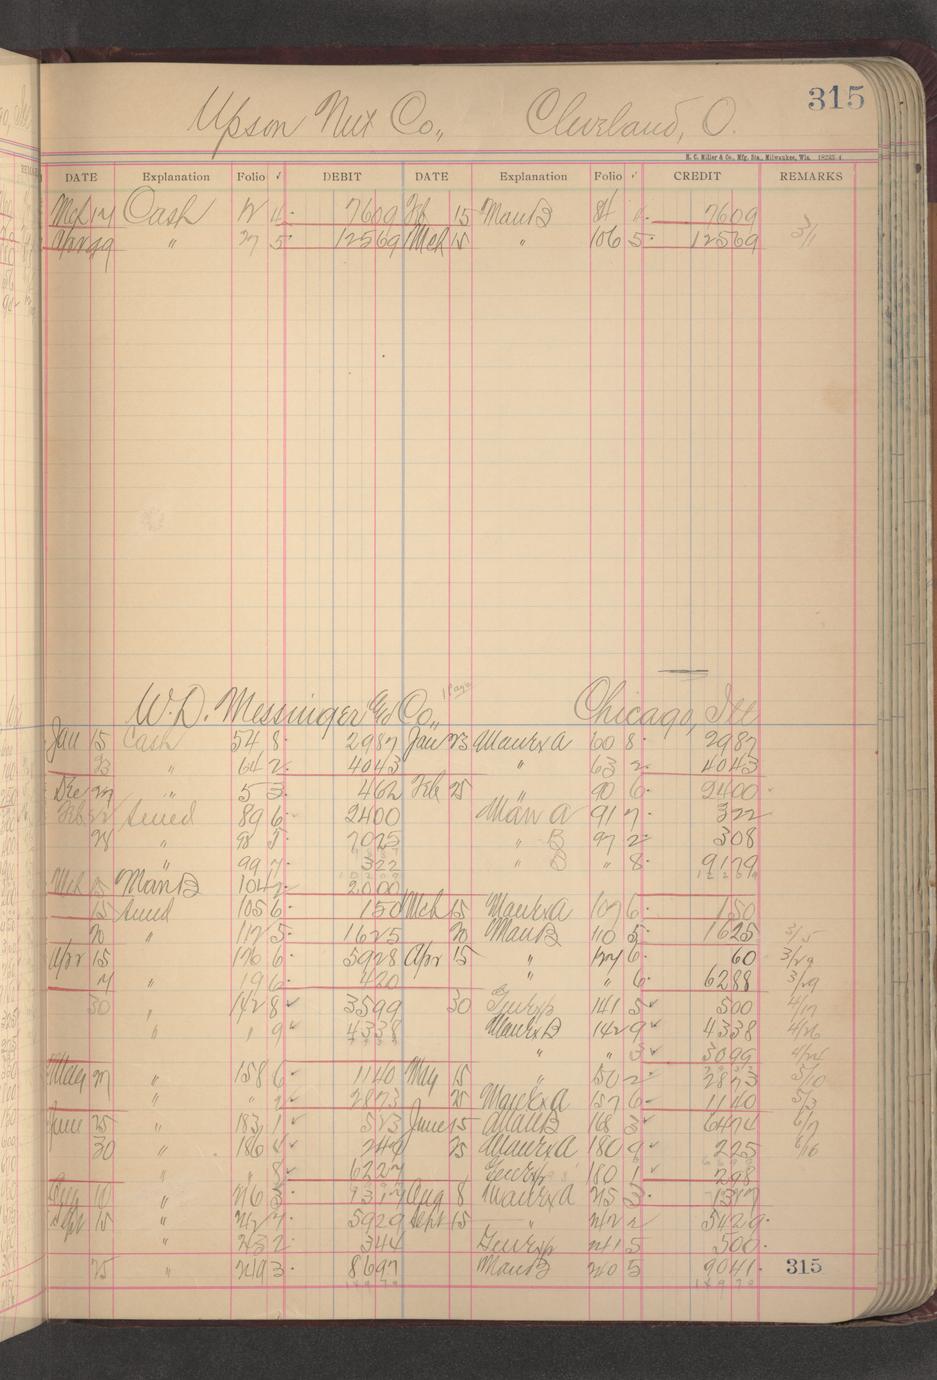 315
Upson Nut Co., Cleveland, O.
H. C. Miller & Co., Mfg. Sta., Milwaukee, Wis.
DATE Explanation Folio √ DEBIT DATE Explanation Folio √ CREDIT REMARKS
Mch 14 Cash 12 4 7609 Feb 15 Man B 84 4 7609
Apr 29 " 27 5 12569 Mch 15 " 106 5 12569 3/11
W. D. Messinger & Co., Chicago, Ill
Jan 15 Cash 54 8 2987 Jan 23 Man Ex A 60 8 2987
23 " 64 2 4043 " 63 2 4043
Dec 27 " 5 3 462 Feb 25 " 90 6 2400
Sund 89 6 2400 Man A 91 7 322
28 " 98 5 7025 " B 97 2 308
" 99 7 322 " B " 8 9179
Mch 15 Man B 104 2000
15 Sund 105 6 150 Mch 15 Man Ex A 107 6 150
20 " 112 5 1625 20 Man B 110 5 1625 3/5
Apr 15 " 126 6 5928 Apr 15 " 127 6 60 3/29
" 19 6 420 " " 6 6288 3/29
30 " 142 8 3599 30 Gen Exp 141 5 500 4/17
" " 9 4338 Man Ex B 142 9 4338 4/26
" " 3 3099 4/26
May 27 " 158 6 1140 May 15 " 50 2 2873 5/10
" " 2873 25 Man Ex A 157 6 1140 5/3
June 25 " 183 1 523 June 15 Man B 168 3 6474 6/7
30 " 186 25 Man Ex A 180 9 225 6/16
" " 8 6227 Gen Exp 180 1 298
Aug 10 " 216 3 1317 Aug 8 Man Ex A 215 3 1317
Sept 15 " 242 5929 Sept 15 " 242 5429
" 2 344 Gen Exp 241 5 500
25 " 249 3 8697 Man B 240 5 9041
315